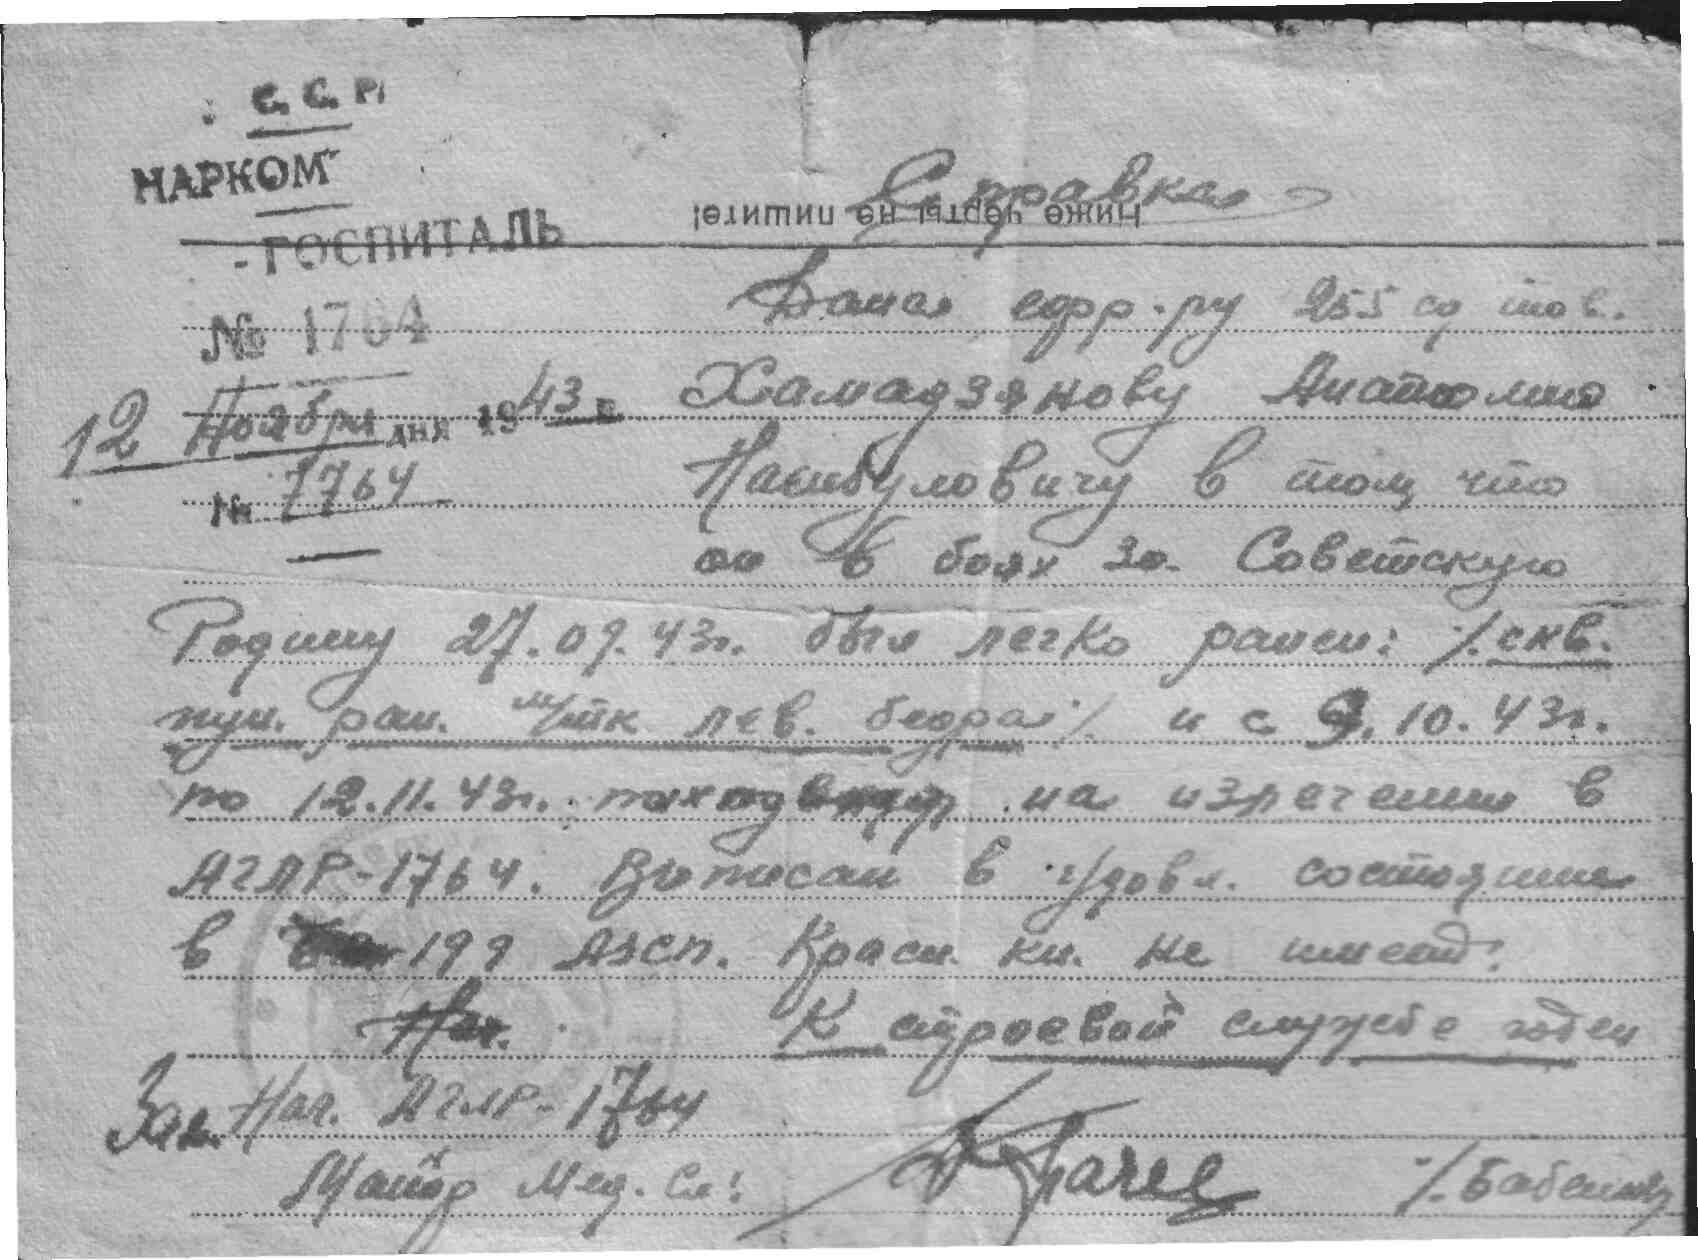 С. С. Р.
НАРКОМ
- ГОСПИТАЛЬ
№ 1764
12 Ноября дня 1943 г.
№ 1764
Справка
Ниже черты не пишите!
Дана ефр-ру 255 сд тов.
Хамадзянову Анатолию
Насибуловичу в том, что
он в боях за Советскую
Родину 27.09.43г. был легко ранен: /. скв.
пул. ран. м/тк лев. бедра / и с 9.10.43г.
по 12.11.43г. находился на излечении в
АГЛР-1764. Выписан в удовл. состоянии
в 199 АЗСП. Красн. кн. не имеет.
К строевой службе годен
Зам. Нач. АГЛР-1764
Майор Мед. Сл: